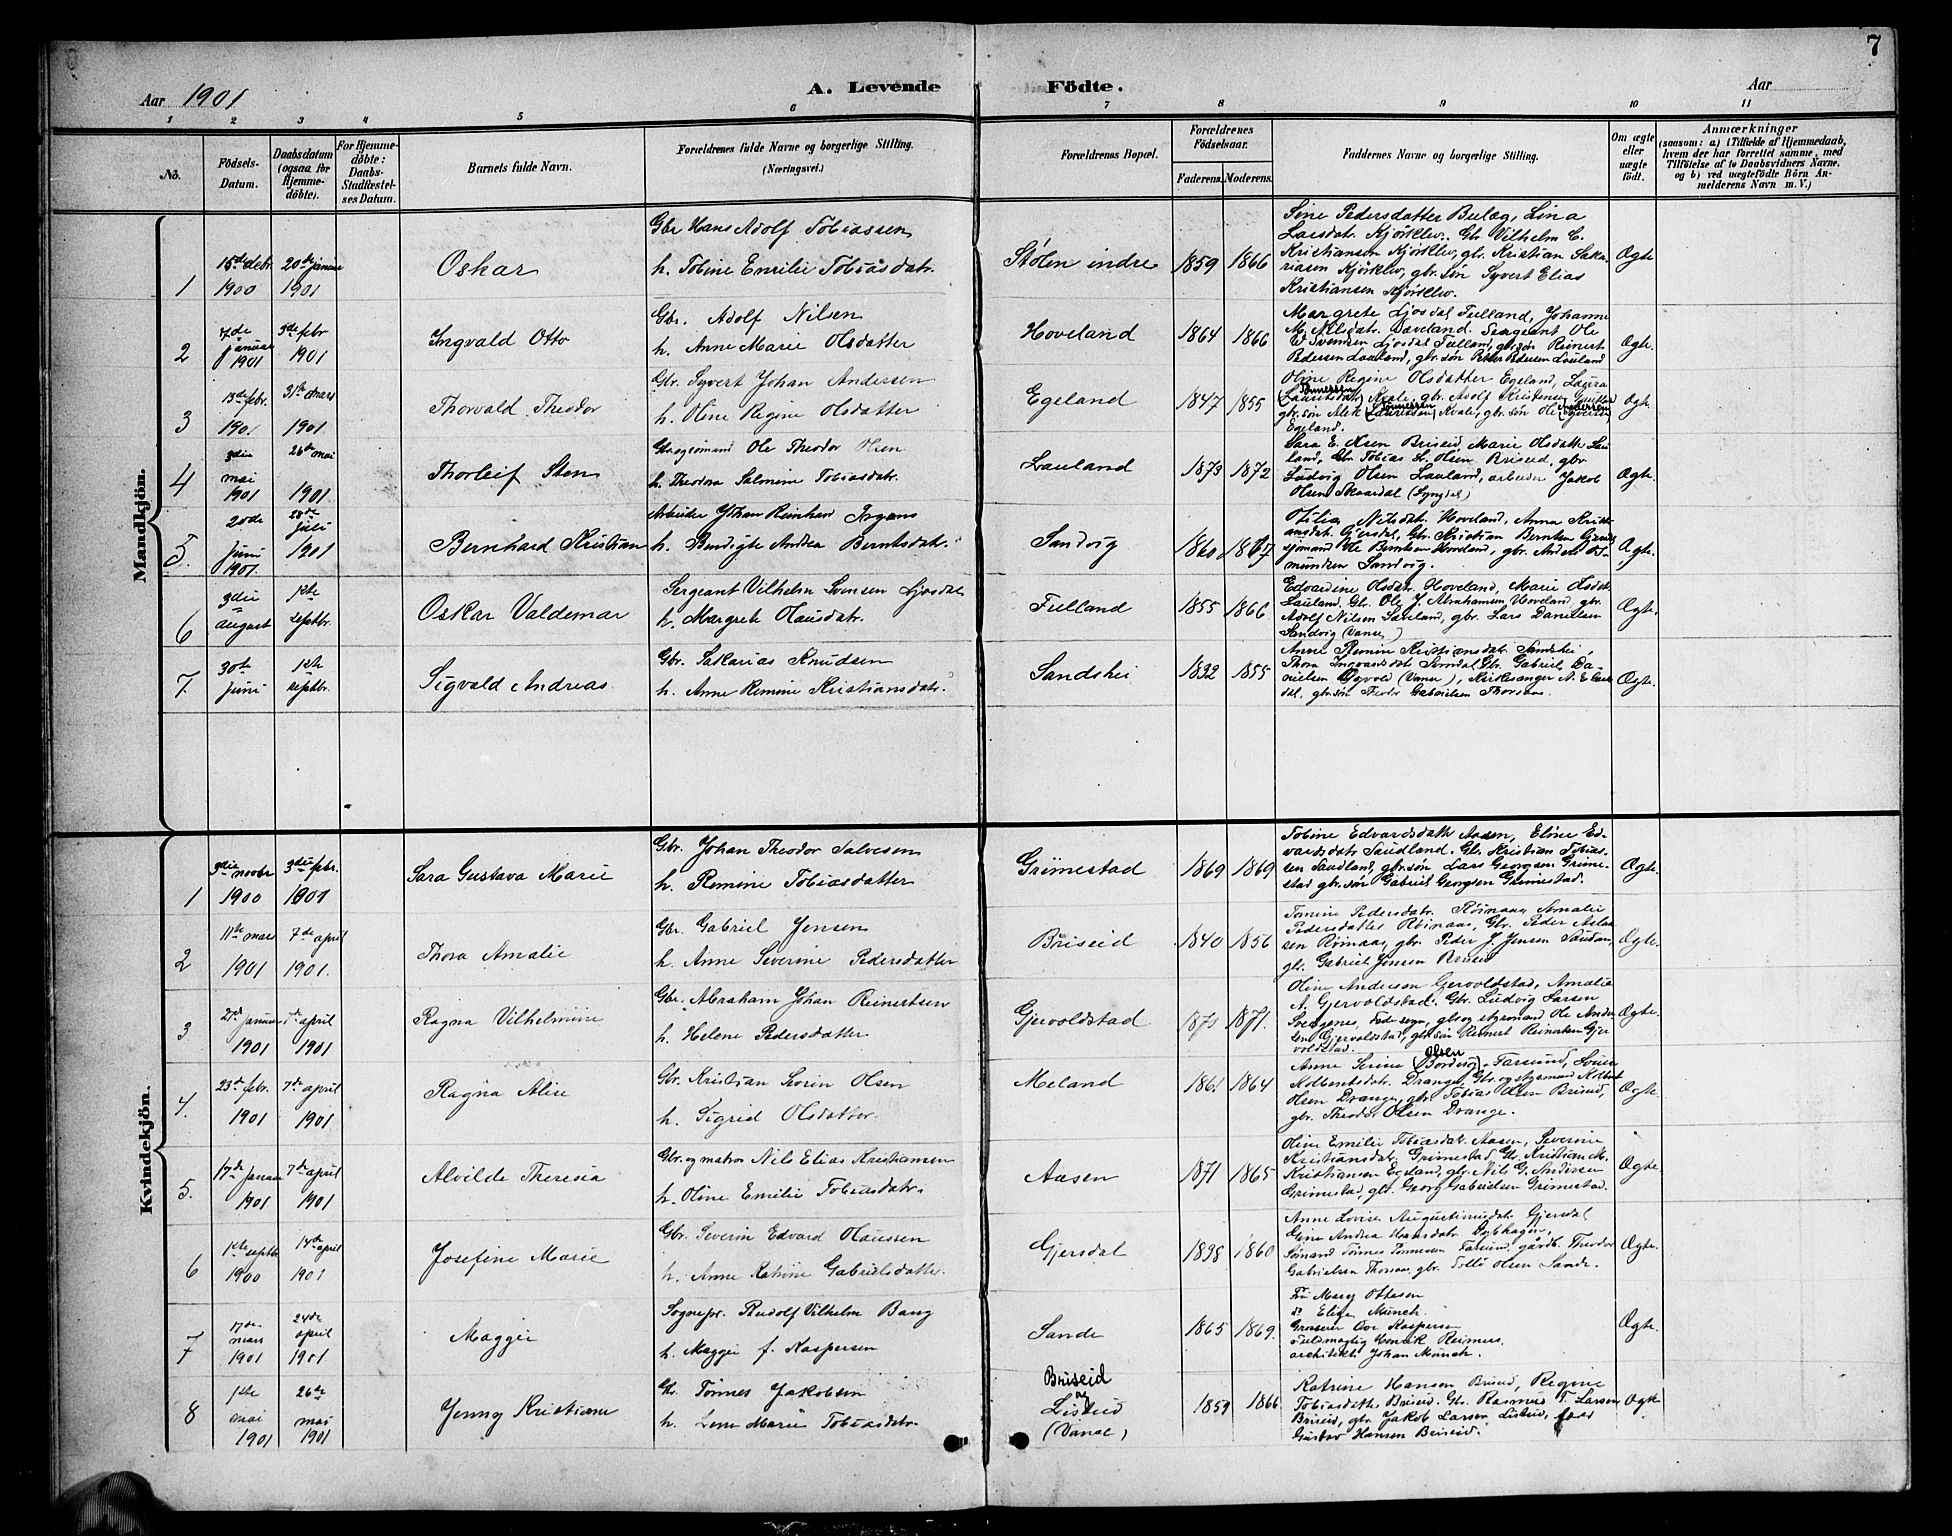 7
Aar 1901
A. Levende Födte.
Aar
1 2 3 4 5 6 7 8 9 10 11
No.
Födsels-
Datum.
Daabsdatum
(ogsaa for
Hjemme-
döbte).
For Hjemme-
döbte:
Daabs-
Stadfæstel-
ses Datum.
Barnets fulde Navn.
Forældrenes fulde Navne og borgerlige Stilling.
(Næringsvei.)
Forældrenes Bopæl.
Forældrenes
Födselsaar.
Faderens. Moderens.
Faddernes Navne og borgerlige Stilling.
Om ægte
eller
uægte
født.
Anmærkninger
(saasom: a) i Tilfælde af Hjemmedaab,
hvem der har forrettet samme, med
Tilföielse af to Daabsvidners Navne,
og b) ved uægtefödte Börn An-
melderens Navn m. V.)
Mandkjön.
1
15de debr. 1900
20de januar 1901
Oskar
Gbr. Hans Adolf Tobiassen
h. Tobine Emilie Tobiasdatr.
Stölen indre
1859 1866
Sine Pedersdatter Bulæg, Lina
Larsdatr. Kjörklev. Gbr Vilhelm C.
Kristiansen Kjörklev, gbr. Kristian Saka-
riasen Kjörklev, gbr. sön Syvert Elias
Kristiansen Kjörklev.
Ægte
2
7de januar 1901
3de febr 1901
Ingvald Otto
Gbr. Adolf Nilsen
h. Anne Marie Olsdatter
Hoveland
1864 1866
Margrete Ljosdal Fulland, Johanne
M. Nilsdatr. Daveland. Sergeant Ole
V Svensen Ljosdal Fulland, gbr. sön Reinert
Pedersen Lauland, gbr. sön Peder Pedersen Lauland
Ægte.
3
13de febr. 1901
31te mars 1901
Thorvald Theodor
Gbr. Syvert Johan Andersen
h. Oline Regine Olsdatter
Egeland
1847 1855
Oline Regine Olsdatter Egeland, Laura
(Lauritsdatr) Kvale, gbr. Adolf Kristensen
gbr. sön Alek (Lauritssen) Kvale, gbr. sön Ole Syvertsen
Egeland.
Ægte.
4
3die mai 1901
26de mai 1901
Thorleif Sten
Gbr. og sömand Ole Theodor Olsen
h. Theodora Salmine Tobiasdatr.
Lauland
1873 1872
Sara E. Olsen Briseid, Marie Olsdatr Lau-
land, Gbr Tobias L. Olsen Briseid, gbr
Ludvig Olsen Lauland, arbeider Jakob
Olsen Skaardal (Lyngdal)
Ægte.
5.
20de juni 1901.
28de juli 1901
Bernhard Kristian
Arbeider Johan Reinhard Irgens
h. Bendigte Andrea Berntsdatr.
Sandvig
1860 1867
Otilia Nilsdatr. Hoveland, Anna Krist-
iansdatr. Gjersdal, Gbr. Kristian Berntsen Gjersdal
sjömand Ole Berntsen Hoveland, gbr. Anders Os-
mundsen Sandvig.
Ægte.
6
3die august
1ste septbr.
Oskar Valdemar
Sergeant Vilhelm Svensen Ljosdal
h. Margrete Hansdatr.
Fulland
1855 1866
Edvardine Olsdatr. Hoveland, Marie Olsdatr.
Lauland. Gbr. Ole J. Abrahamsen Hoveland, gbr.
Adolf Nilsen Haveland, gbr. Lars Danielsen
Sandvig (Vanse)
Ægte.
7.
30te juni
1ste septbr.
Sigvald Andreas
Gbr. Sakarias Knudsen
h. Anne Remine Kristiansdatr.
Sandshei
1832 1855
Anne Remine Kristiansdatr. Sandshei,
Thora Ingvaldsdatr. Gbr. Gabriel Da-
nielsen Öyvold (Vanse), Kirkesanger
gbr. sön Theodor Gabrielsen Thorsaas.
Ægte.
Kvindekjön.
1
3die novbr 1900
3die febr. 1901
Sara Gustava Marie
Gbr. Johan Theodor Salvesen
h. Remine Tobiasdatter
Grimestad
1869 1869
Tobine Edvardsdatr Aasen, Eline Ed-
vardsdatr Saudland. Gbr. Kristian Tobias-
sen Saudland, gbr. sön Lars Georgsen Grime-
stad gbr. sön Gabriel Georgsen Grimestad.
Ægte.
2
11te mars 1901
7de april 1901.
Thora Amalie
Gbr. Gabriel Jensen
h. Anne Severine Pedersdatter
Briseid
1840 1856
Tomine Pedersdatr. Röinaas, Amalie
Pedersdatter Röinaas, Gbr. Peder Aslak-
sen Röinaas, gbr. Peder J. Jensen
gbr. Gabriel Jensen Briseid
Ægte.
3
21de januar 1901
7de april 1901
Ragna Vilhelmine
Gbr. Abraham Johan Reinertsen
h. Helene Pedersdatter
Gjervoldstad
1871 1871.
Oline Andersen Gjervoldstad, Amalie
A. Gjervoldstad. Gbr. Ludvig Larsen
Svegenes, Fede sogn, gbr. og styrmand Ole Ander-
sen Gjervoldstad, gbr. sön Reinert Reinertsen Gjer-
voldstad.
Ægte.
4.
23de febr. 1901
7de april 1901
Ragna Alise
Gbr. Kristian Severin Olsen
h. Sigrid Olsdatter.
Meland
1861 1864
Anne Serine (Bordvig) Olsen, Farsund,
Kolbentsdatr. Drange, Gbr. og styrmand Kolbent
Olsen Drange, gbr. Tobias Olsen Briseid,
gbr. Theodor Olsen Drange.
Ægte.
5.
17de januar 1901
7de april 1901
Alvilde Theresia
Gbr. og matros Nils Elias Kristiansen
h. Oline Emilie Tobiasdatr.
Aasen
1871 1865
Oline Emilie Tobiasdatr. Aasen, Severine
Kristiansdatr. Grimestad, Gbr. Kristian M.
Kristiansen Egeland, gbr. Nils G. Andersen
Grimestad, gbr. Georg Gabrielsen Grimestad.
Ægte.
6
1ste septbr 1900
14de april 1901
Josefine Marie
Gbr. Severin Edvard Hansen
h. Anne Katrine Gabrielsdatter.
Gjersdal
1898 1860
Anne Lovise Augustinusdatr. Gjersdal
Gine Andrea Isaksdatr. Dybhagen,
Sömand Tönnes Farsund, gaardb. Theodor
Gabrielsen Thorsaas, gbr. Tollo Olsen Sande.
Ægte.
7
17de mars 1901
24de april 1901
Maggie
Sognepr. Rudolf Vilhelm Bang
h. Maggie f. Kaspersen
Sande
1865 1869.
Fru Mary Ottesen
do Elise Münch.
Grosserer Ove Kaspersen
fuldmægtig Henrik Reimers.
architekt Johan Münch.
Ægte.
8
1ste mai 1901
26de mai 1901
Jenny Kristiane
Gbr. Tönnes Jakobsen
h. Lene Marie Tobiasdatr.
Briseid
og
Listeid
(Vanse)
1859 1866
Katrine Hansen Briseid, Regine
Tobiasdatter Briseid. Gbr. Rasmus T. Larsen
Briseid, gbr. Jakob Larsen Listeid,
Gustav Hansen Briseid.
Ægte.